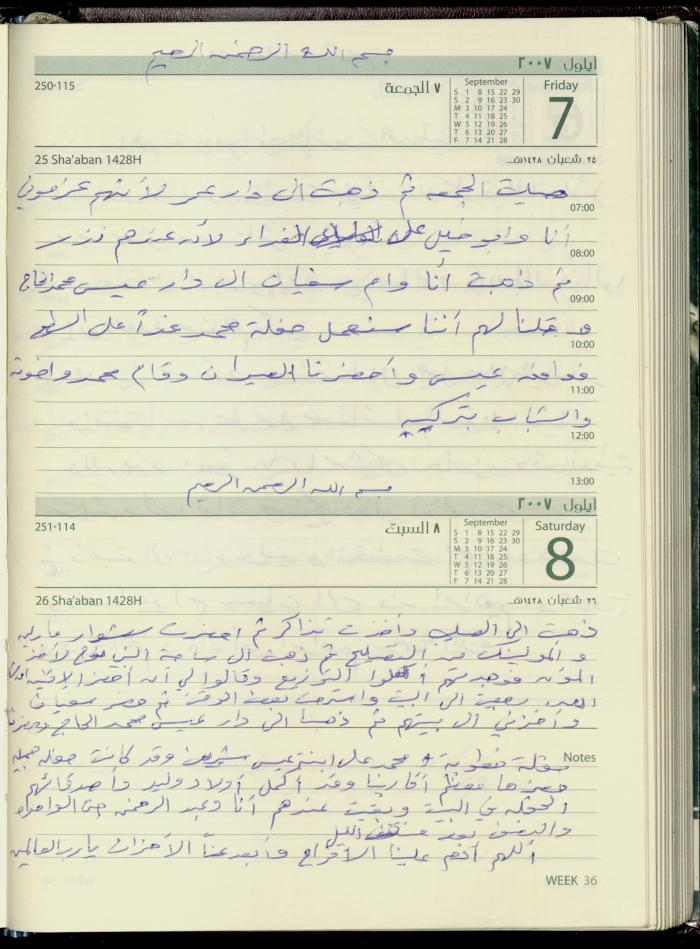 بسم الله الرحمن الرحيم
ايلول ٢٠٠٧
250-115
٧ الجمعة
September
S 1 8 15 22 29
S 2 9 16 23 30
M 3 10 17 24
T 4 11 18 25
W 5 12 19 26
T 6 13 20 27
F 7 14 21 28
Friday
7
25 Sha'aban 1428H
٢٥ شعبان ١٤٢٨هـ
صليت الجمعه ثم ذهبت الى دار عمر لأنهم عزموني
07:00
أنا وابو خليل على الغداء لأنه عندهم نذر
08:00
ثم ذهبت أنا وام سفيان الى دار عيسى محمد الحاج
09:00
و قلنا لهم أننا سنعمل حفلة محمد غداً على السطح
10:00
فوافق عيسى وأحضرنا العيدان وقام محمد واخوته
11:00
والشباب بتركيبه
12:00
13:00
بسم الله الرحمن الرحيم
ايلول ٢٠٠٧
251-114
٨ السبت
September
S 1 8 15 22 29
S 2 9 16 23 30
M 3 10 17 24
T 4 11 18 25
W 5 12 19 26
T 6 13 20 27
F 7 14 21 28
Saturday
8
26 Sha'aban 1428H
٢٦ شعبان ١٤٢٨هـ
ذهبت الى الصليب وأخذت تذاكر ثم احضرت سشوار
و المولينكس من التصليح ثم ذهبت الى ساحة
المؤن فوجدتهم أكملوا التوزيع وقالوا لي أن أحضر الاثنين
رجعت الى البيت واسترحت بعض الوقت ثم حضر سفيان
وأخذني الى بيتهم ثم ذهبنا الى دار عيسى محمد الحاج
Notes
حفلة خطوبة محمد على ابنة عيسى شيرين وقد كانت حفله جميله
حضرها معظم أقاربنا وقد أكمل أولاد وليد وأصدقائهم
الحفله في البيت وبقيت عندهم أنا وعبد الرحمن حتى الواحدة
والنصف بعد منتصف الليل
اللهم أدم علينا الأفراح وأبعد عنا الأحزان يا رب العالمين
WEEK 36